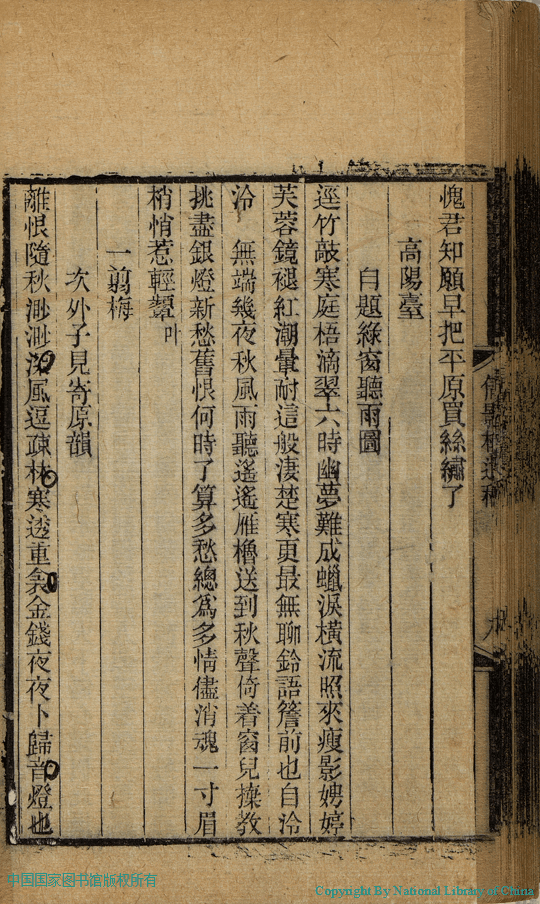 愧君知願早把平原買絲繡了
高陽臺
自題綠窗聽雨圖
逕竹敲寒庭梧滴翠六時幽夢難成蠟淚橫流照來瘦影娉婷
芙蓉鏡褪紅潮暈耐這般淒楚寒更最無聊鈴語簷前也自泠
泠　無端幾夜秋風雨聽遙遙雁櫓送到秋聲倚着窗兒擡教
挑盡銀燈新愁舊恨何時了算多愁總爲多情儘消魂一寸眉
梢悄惹輕顰叶
一剪梅
次外子見寄原韻
離恨隨秋渺渺深風逗疎林寒透重衾金錢夜夜卜歸音燈也
九
中国国家图书馆版权所有
Copyright By National Library of China